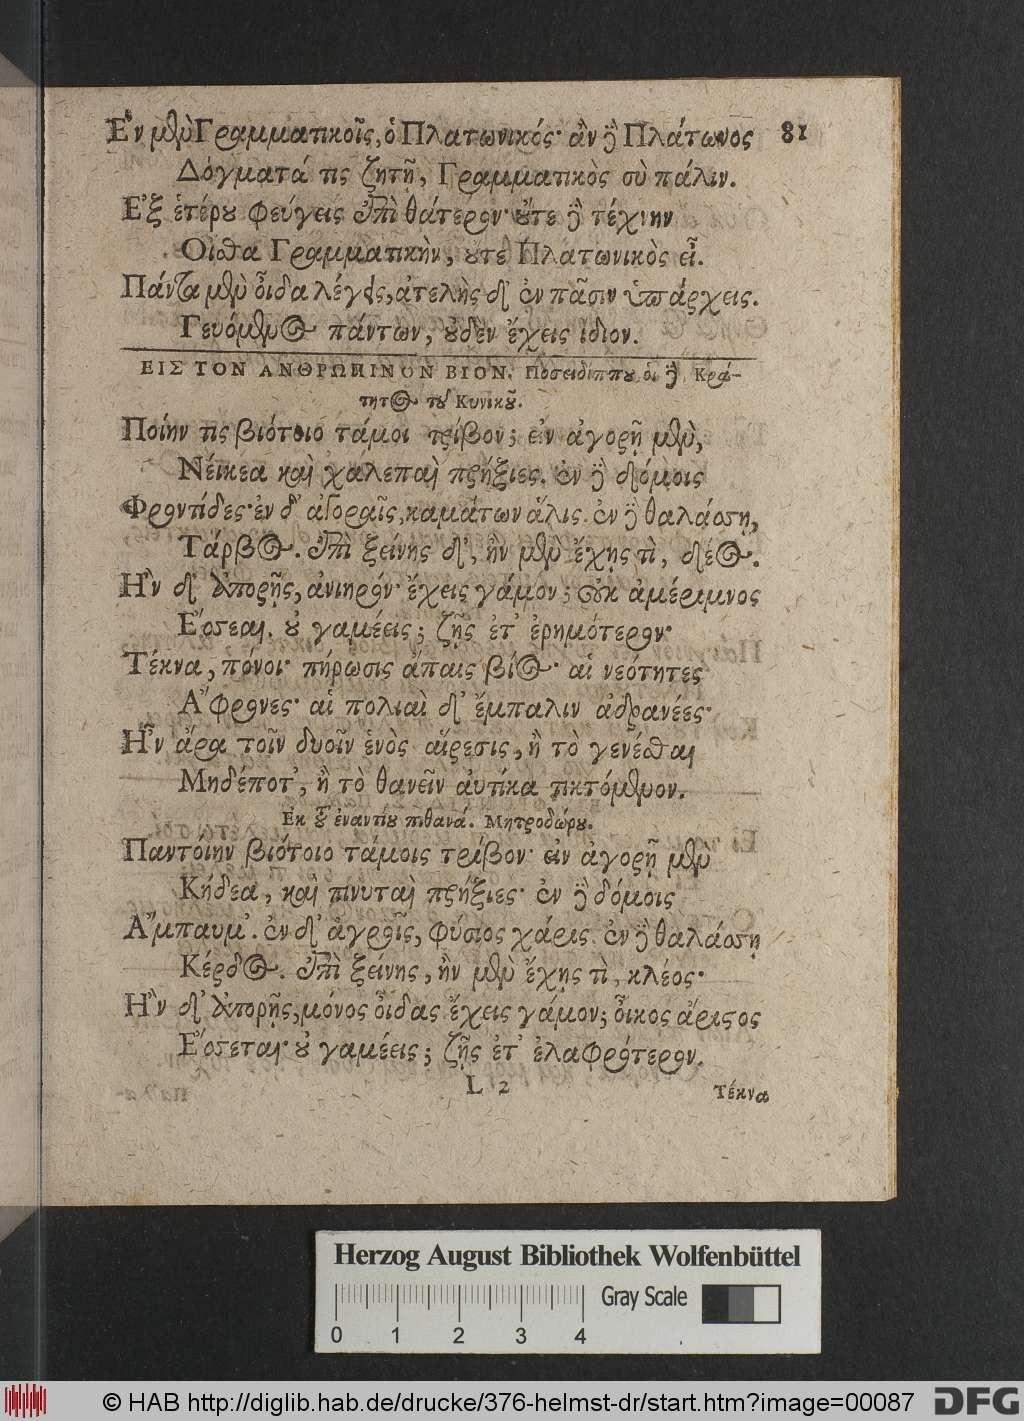 Ἐν μὲν Γραμματικοῖς, ὁ Πλατωνικός· ἂν δὲ Πλάτωνος 81
Δόγματά τις ζητῇ, Γραμματικὸς σὺ πάλιν.
Ἐξ ἑτέρου φεύγεις ἐπὶ θάτερον· οὔτε δὲ τέχνην
Οἶσθα Γραμματικὴν, οὔτε Πλατωνικὸς εἶ.
Πάντα μὲν οἶδα λέγεις, ἀτελὴς δ' ἐν πᾶσιν ὑπάρχεις.
Γευόμενος πάντων, οὐδὲν ἔχεις ἰδιον.
ΕΙΣ ΤΟΝ ΑΝΘΡΩΠΙΝΟΝ ΒΙΟΝ. Ποσειδίππου, οἱ δὲ, Κρά-
τητος τοῦ Κυνικοῦ.
Ποίην τις βιότοιο τάμοι τρίβον; εἰν ἀγορῇ μὲν,
Νείκεα καὶ χαλεπαὶ πρήξιες. ἐν δὲ δόμοις
Φροντίδες· ἐν δ' ἀγοραῖς, καμάτων ἅλις. ἐν δὲ θαλάσσῃ,
Τάρβος. ἐπὶ ξείνης δ', ἢν μὲν ἔχῃς τὶ, δέος.
Ἢν δ' ἀπορῇς, ἀνιηρόν· ἔχεις γάμον; οὐκ ἀμέριμνος
Ἔσσεαι. οὐ γαμέεις; ζῇς ἐτ' ἐρημότερον·
Τέκνα, πόνοι· πήρωσις ἄπαις βίος· αἱ νεότητες
Ἄφρονες· αἱ πολιαὶ δ' ἔμπαλιν ἀδρανέες·
Ἦν ἄρα τοῖν δυοῖν ἑνὸς αἵρεσις, ἢ τὸ γενέσθαι
Μηδέποτ', ἢ τὸ θανεῖν αὐτίκα τικτόμενον.
Ἐκ τοῦ ἐναντίου πιθανά. Μητροδώρου.
Παντόιην βιότοιο τάμοις τρίβον· εἰν ἀγορῇ μὲν
Κήδεα, καὶ πινυταὶ πρήξιες· ἐν δὲ δόμοις
Ἄμπαυμ'. ἐν δ' ἀγροῖς, φύσιος χάρις. ἐν δὲ θαλάσσῃ
Κέρδος. ἐπὶ ξείνης, ἢν μὲν ἔχῃς τὶ, κλέος·
Ἢν δ' ἀπορῇς, μόνος οἶδας. ἔχεις γάμον; οἶκος ἄριστος
Ἔσσεται· οὐ γαμέεις; ζῇς ἐτ' ἐλαφρότερον.
L 2 Τέκνα
Herzog August Bibliothek Wolfenbüttel
Gray Scale
0 1 2 3 4
© HAB http://diglib.hab.de/drucke/376-helmst-dr/start.htm?image=00087 DFG